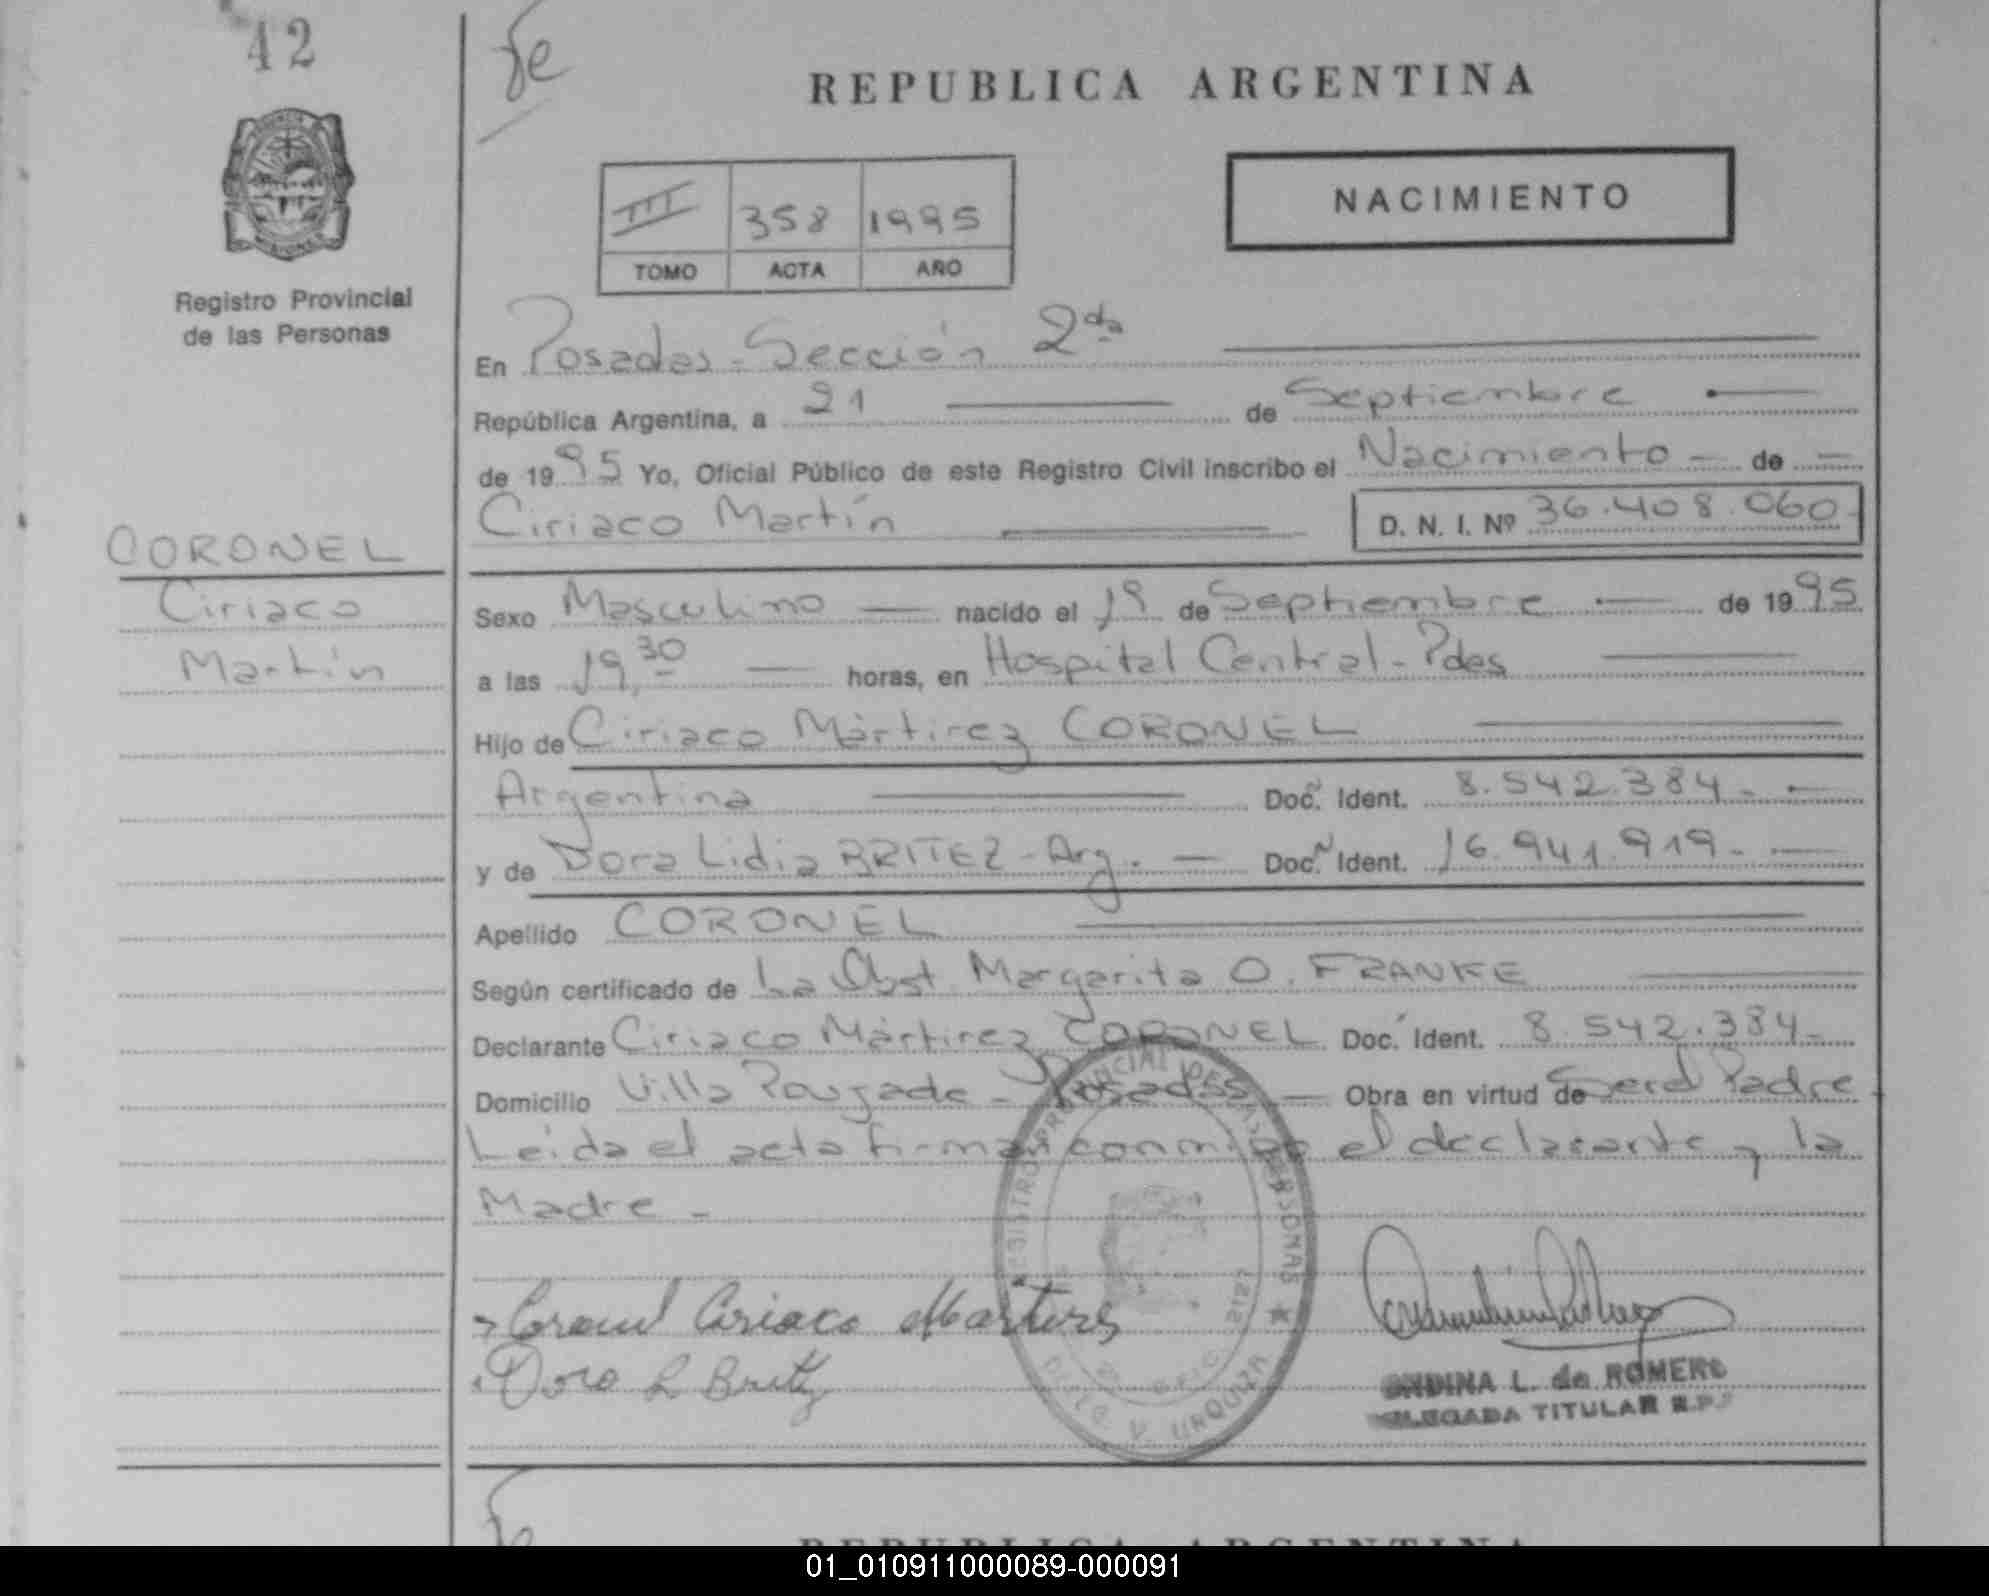 42
fe
REPUBLICA ARGENTINA
NACIMIENTO
III 358 1995
TOMO ACTA AÑO
Registro Provincial
de las Personas
En Posadas - Sección 2da
República Argentina, a 21 de Septiembre
de 1995 Yo, Oficial Público de este Registro Civil inscribo el Nacimiento - de -
Ciriaco Martín D. N. I. Nº 36.408.060-
CORONEL
Ciriaco
Martín
Sexo Masculino — nacido el 19 de Septiembre — de 1995
a las 19,30 — horas, en Hospital Central - Pdas
Hijo de Ciriaco Mártirez CORONEL
Argentina Doc. Ident. 8.542.384-
y de Dora Lidia BRITEZ - Arg. — Doc. Ident. 16.941.919-
Apellido CORONEL
Según certificado de La Obst. Margarita O. FRANKE
Declarante Ciriaco Mártirez CORONEL Doc. Ident. 8.542.384-
Domicilio Villa Poujade - Posadas — Obra en virtud de Ser el Padre
Leída el acta firman conmigo el declarante y la
Madre -
REGISTRO PROVINCIAL DE LAS PERSONAS
OFIC. 2127
V. URQUIZA
Coronel Ciriaco Martires
Dora L Britez
ONDINA L. de ROMERO
DELEGADA TITULAR R.P.
REPUBLICA ARGENTINA
01_010911000089-000091